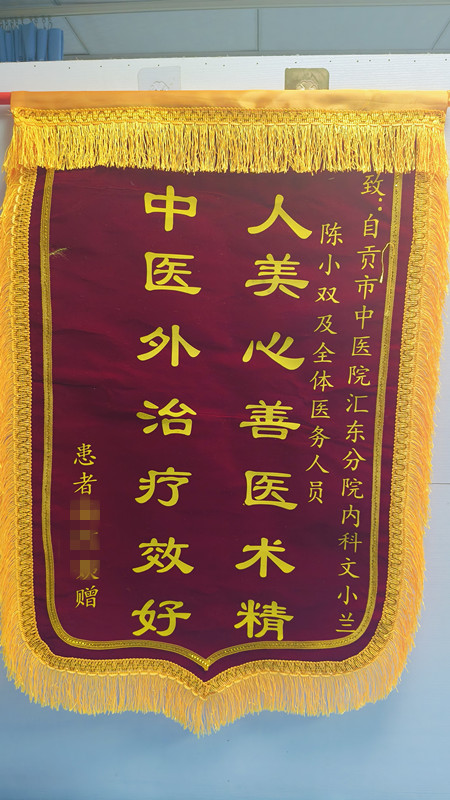 致：自贡市中医院汇东分院内科文小兰
陈小双及全体医务人员
人美心善医术精
中医外治疗效好
患者 赠